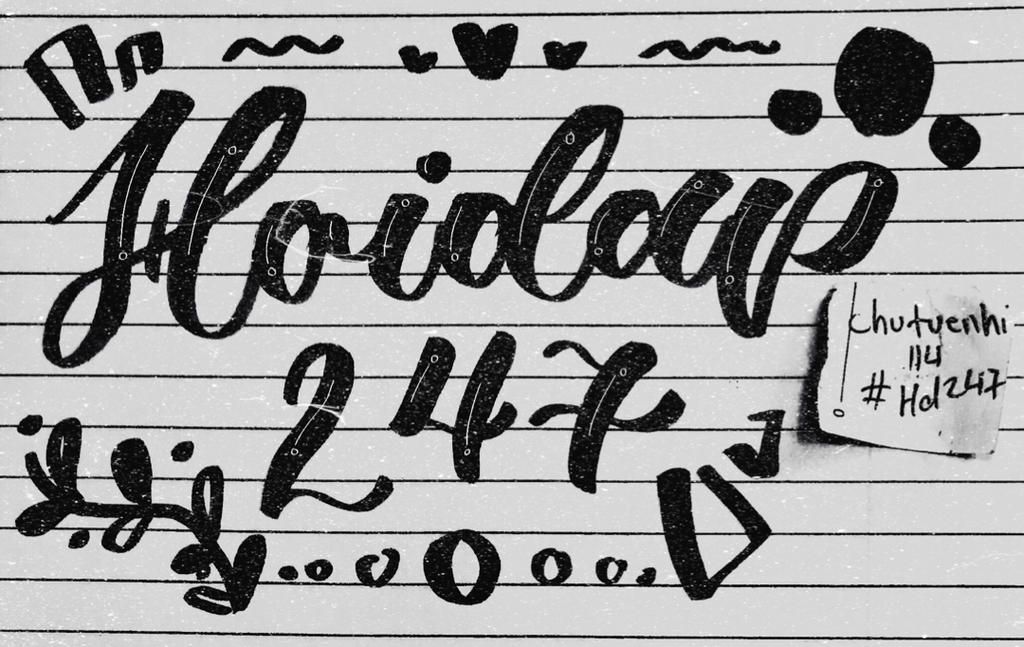 Hoidap
247
chutuenhi
114
#Hd247